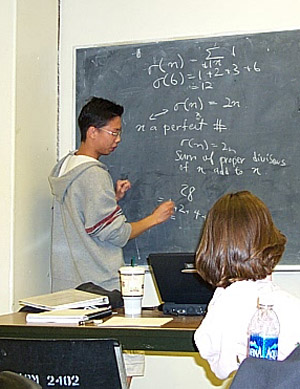 (n) = Σ 1
σ(6) = 1+2+3+6
= 12
↔ σ(n) = 2n
n a perfect #
σ(n) = 2n
Sum of proper divisors
of n add to n
28
OM 2-402